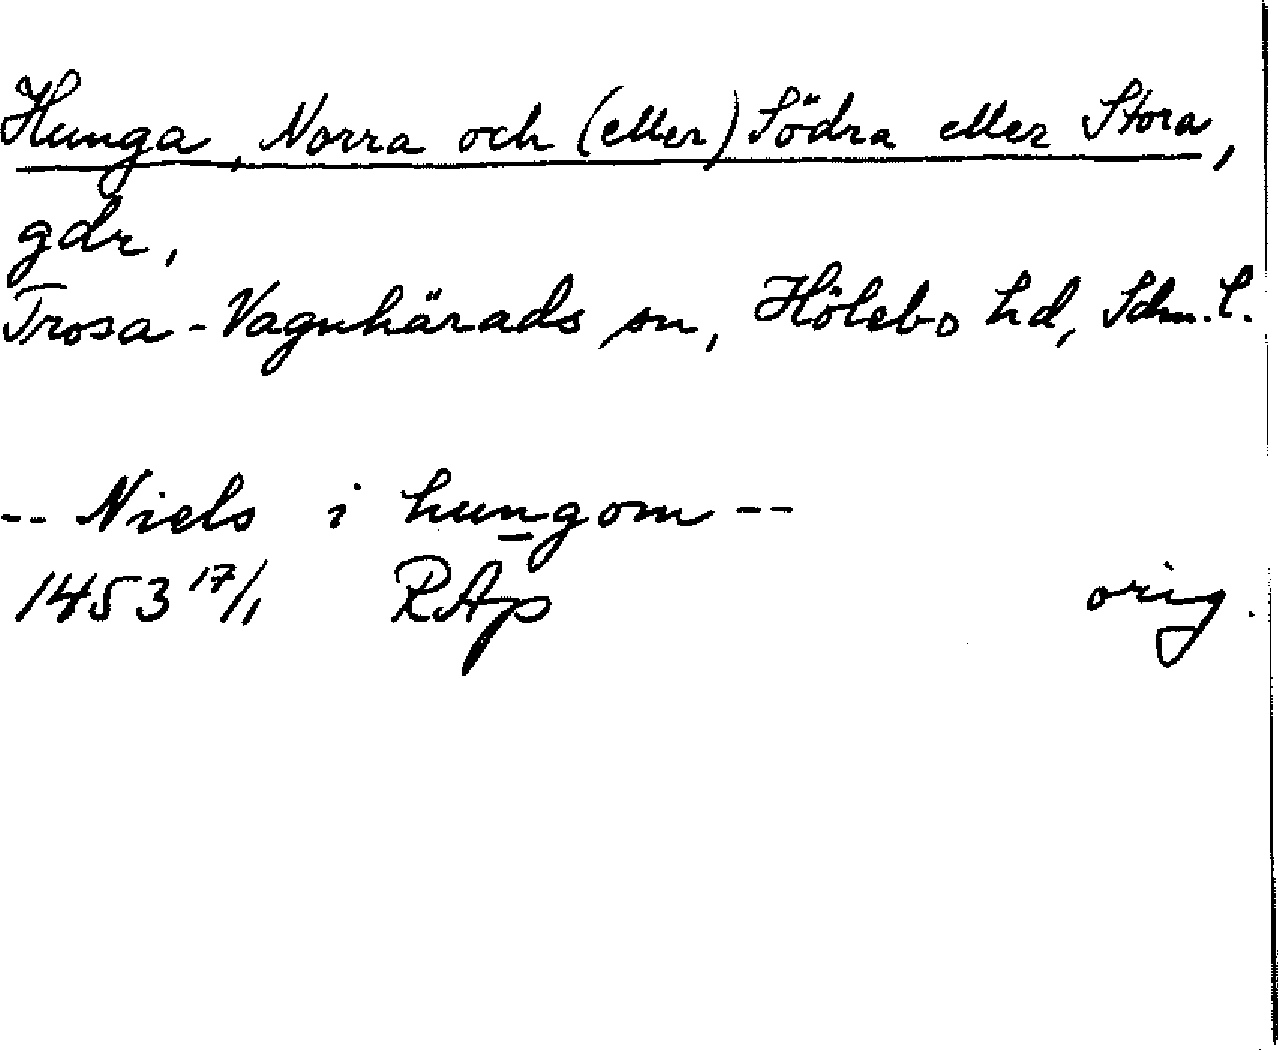 Hunga, Norra och (eller) Södra eller Stora,
gdr,
Trosa-Vagnhärads sn, Hölebo hd, Sdm. l.
-- Niels i hungom --
1453 17/1 RAp orig.